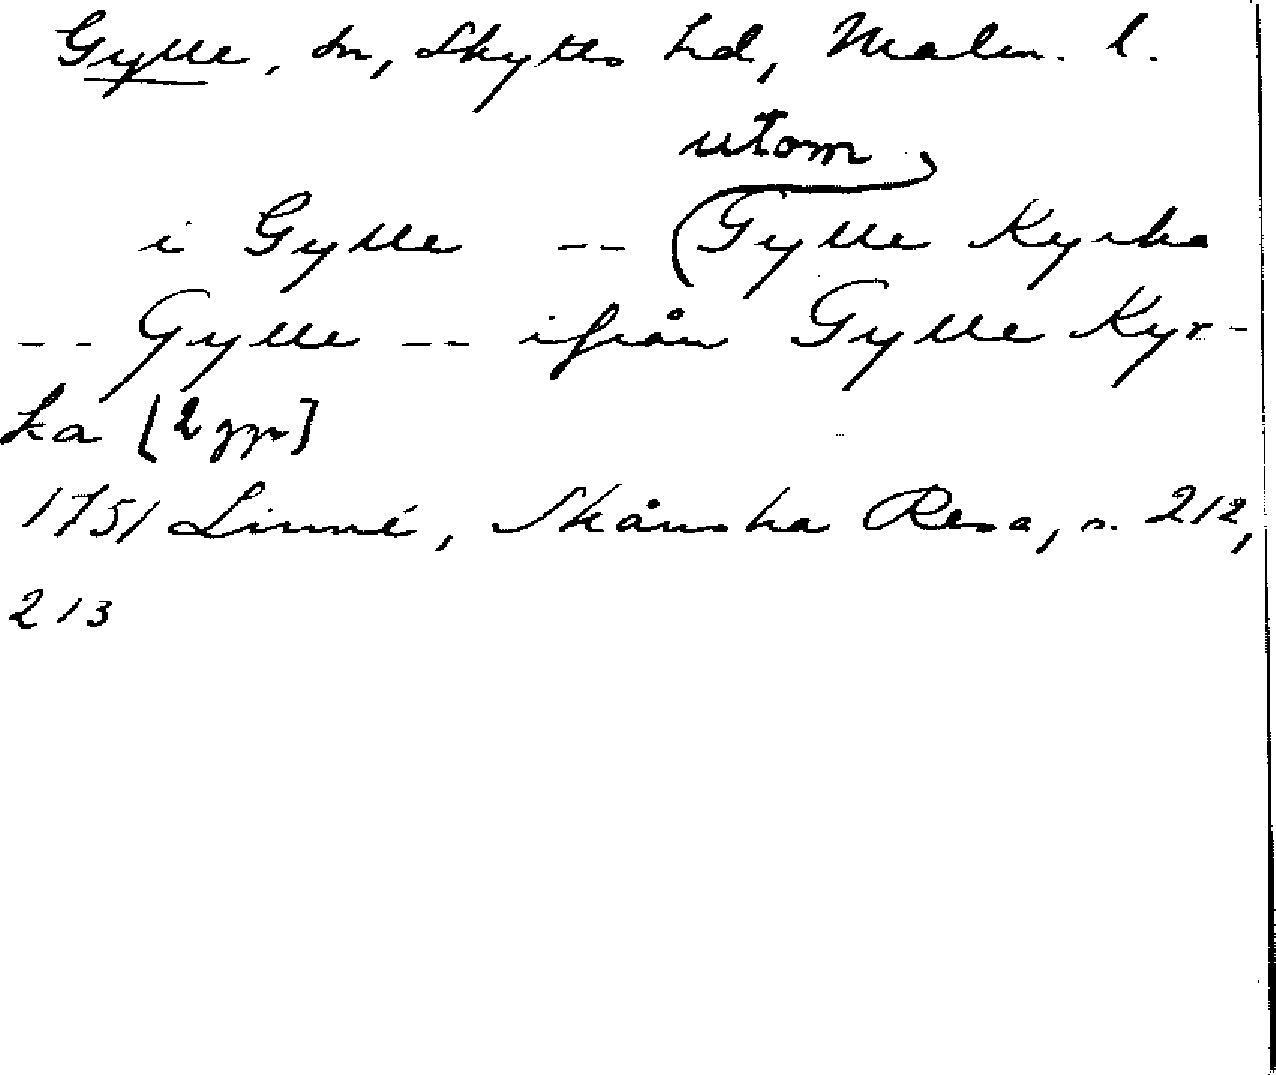 Gylle, sn, Skytts hd, Malm. l.
utom
i Gylle -- (Gylle Kyrka
-- Gylle -- ifrån Gylle Kyr-
ka [2 ggr]
1751 Linné, Skånska Resa, s. 212,
213